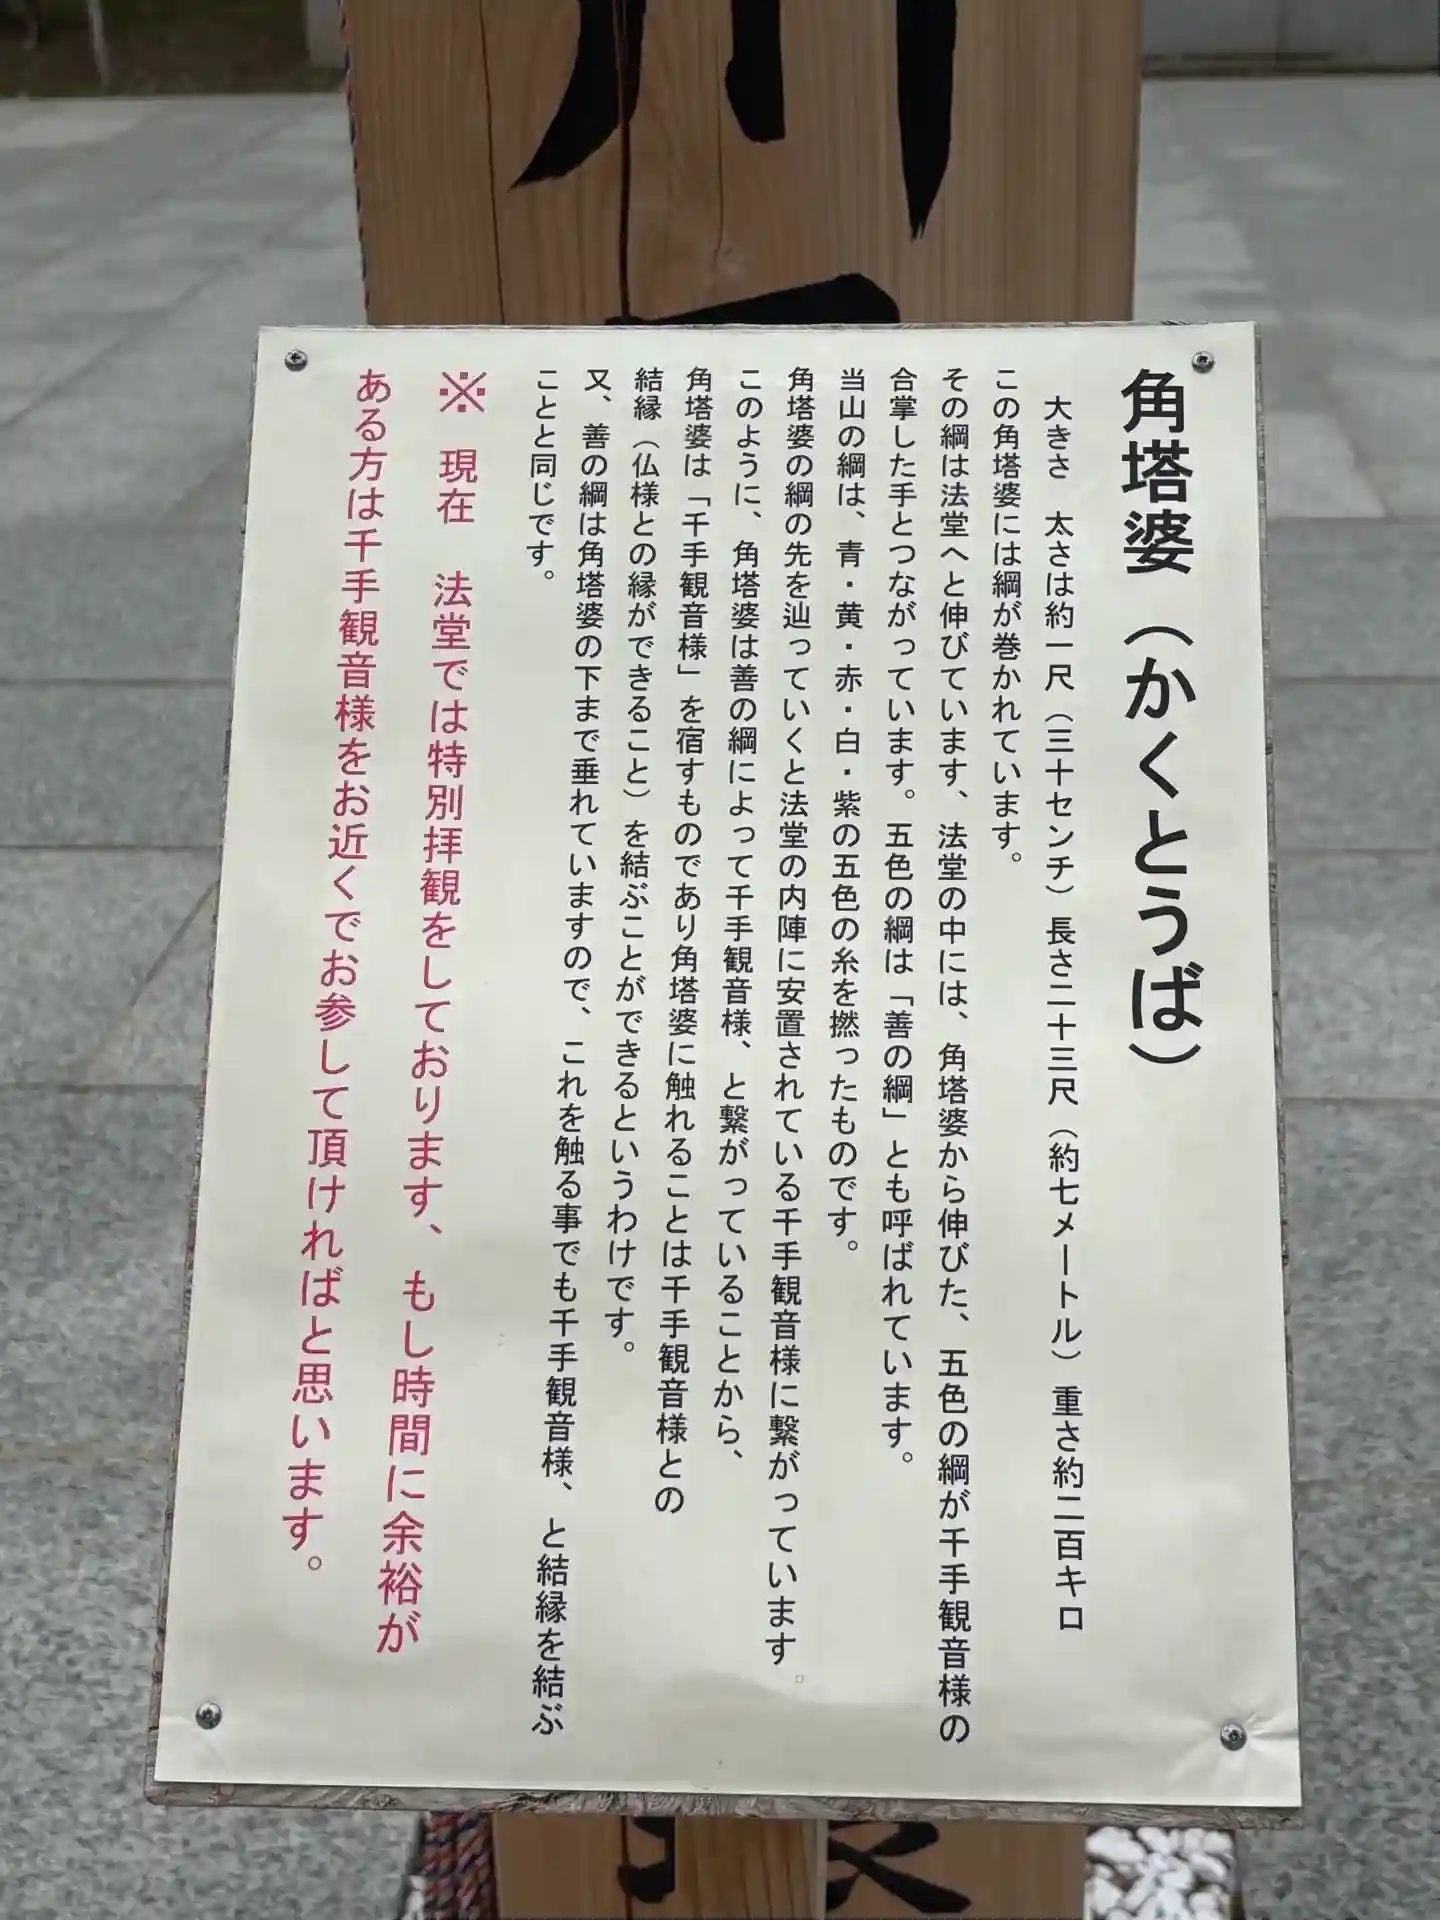 角塔婆（かくとうば）
大きさ　太さは約一尺（三十センチ）長さ二十三尺（約七メートル）重さ約二百キロ
この角塔婆には綱が巻かれています。
その綱は法堂へと伸びています、法堂の中には、角塔婆から伸びた、五色の綱が千手観音様の
合掌した手とつながっています。五色の綱は「善の綱」とも呼ばれています。
当山の綱は、青・黄・赤・白・紫の五色の糸を撚ったものです。
角塔婆の綱の先を辿っていくと法堂の内陣に安置されている千手観音様に繋がっています。
このように、角塔婆は善の綱によって千手観音様、と繋がっていることから、
角塔婆は「千手観音様」を宿すものであり角塔婆に触れることは千手観音様との
結縁（仏様との縁ができること）を結ぶことができるというわけです。
又、善の綱は角塔婆の下まで垂れていますので、これを触る事でも千手観音様、と結縁を結ぶ
ことと同じです。
※　現在　法堂では特別拝観をしております、もし時間に余裕が
ある方は千手観音様をお近くでお参して頂ければと思います。